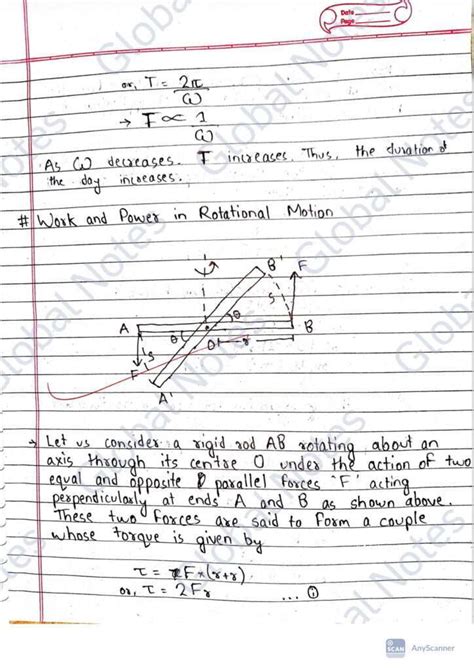 Date
Page
or, T = 2π/ω
→ T ∝ 1/ω
As ω decreases. T increases. Thus, the duration of
the day increases.
# Work and Power in Rotational Motion
B'
F
S
θ
A
B
θ
O
r
S
F
A'
→ Let us consider a rigid rod AB rotating about an
axis through its centre O under the action of two
equal and opposite parallel forces 'F' acting
perpendicularly at ends A and B as shown above.
These two forces are said to form a couple
whose torque is given by
τ = F×(r+r)
or, τ = 2Fr ... ①
Global Notes
SCAN
AnyScanner